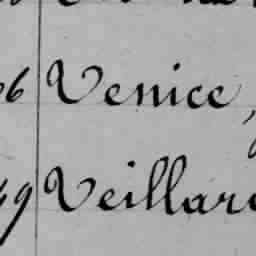 6 Venice,
49 Veillar